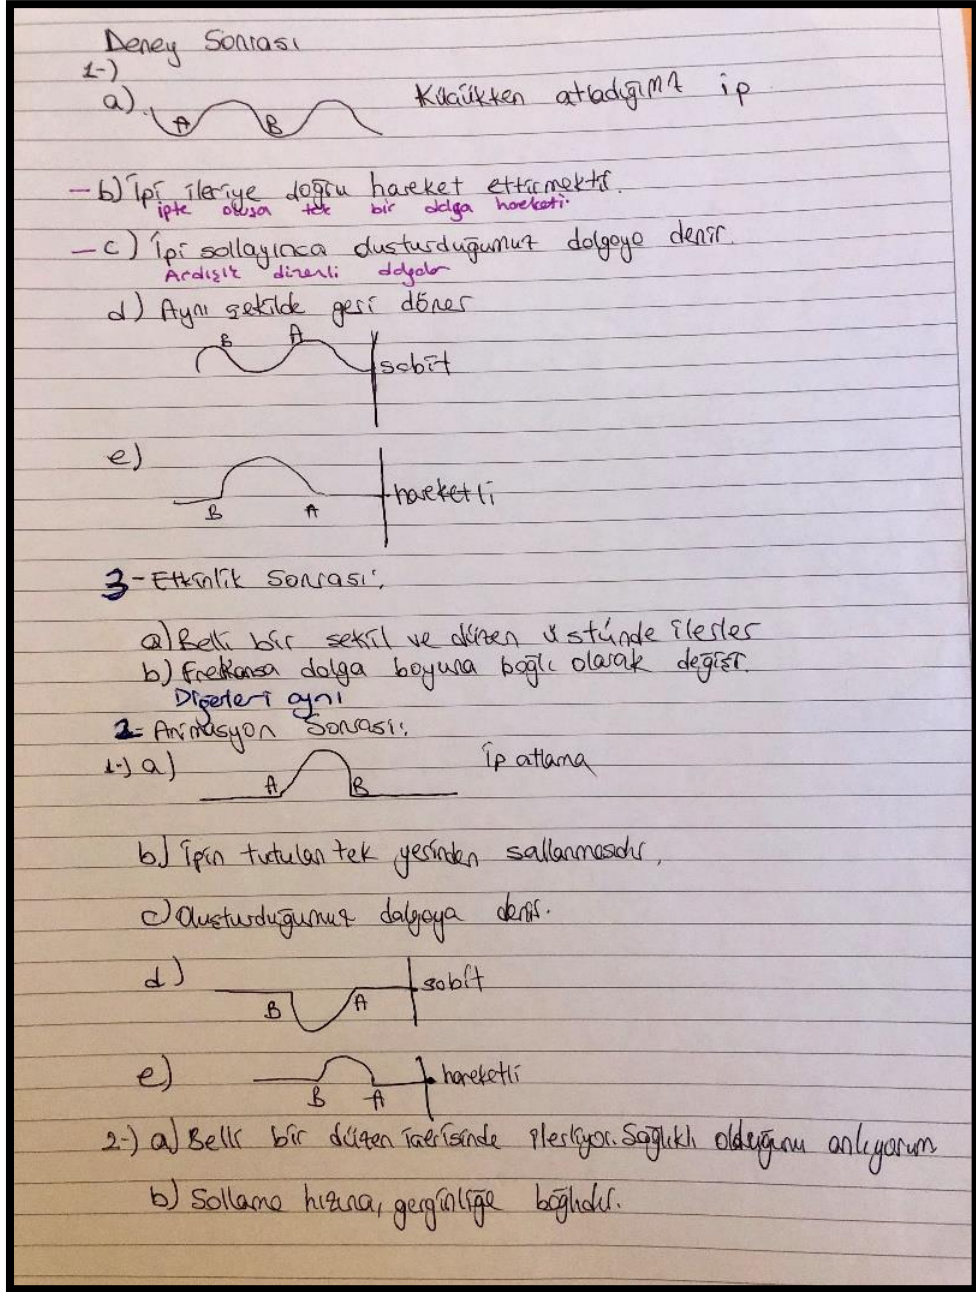 Deney Sonrası
1-)
a) A B Küçükken atladığımız ip
- b) İpi ileriye doğru hareket ettirmektir.
ipte oluşan tek bir dalga hareketi.
- c) İpi sallayınca oluşturduğumuz dalgaya denir.
Ardışık düzenli dalgalar
d) Aynı şekilde geri döner
B A sabit
e)
B A hareketli
3- Etkinlik Sonrası:
a) Belli bir şekil ve düzen üstünde ilerler
b) Frekansa dalga boyuna bağlı olarak değişir.
Diğerleri aynı
2- Animasyon Sonrası:
1-) a) A B İp atlama
b) İpin tutulan tek yerinden sallanmasıdır.
c) Oluşturduğumuz dalgaya denir.
d) B A sabit
e) B A hareketli
2-) a) Belli bir düzen içerisinde ilerliyor. Sağlıklı olduğunu anlıyorum
b) Sallama hızına, gerginliğe bağlıdır.